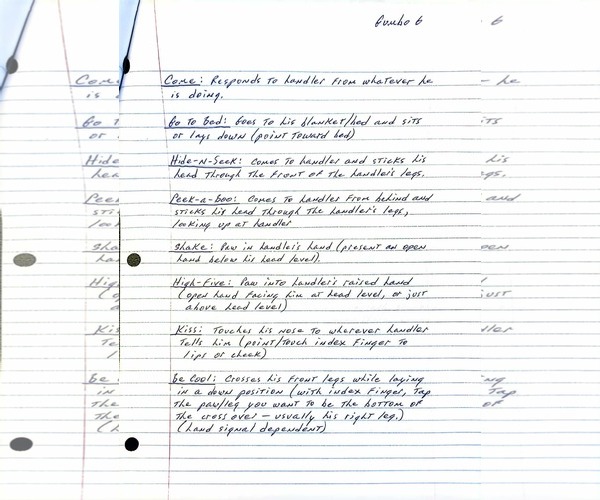 Gumbo 6
Come: Responds to handler from whatever he
is doing.
Go To Bed: Goes to his blanket/bed and sits
or lays down (point toward bed)
Hide-N-Seek: Comes to handler and sticks his
head through the front of the handler's legs.
Peek-a-Boo: Comes to handler from behind and
sticks his head through the handler's legs,
looking up at handler
Shake: Paw in handler's hand (present an open
hand below his head level).
High-Five: Paw into handler's raised hand
(open hand facing him at head level, or just
above head level)
Kiss: Touches his nose to wherever handler
tells him (point/touch index finger to
lips or cheek)
Be Cool: Crosses his front legs while laying
in a down position (with index finger, tap
the paw/leg you want to be the bottom of
the cross over - usually his right leg.)
(hand signal dependent)